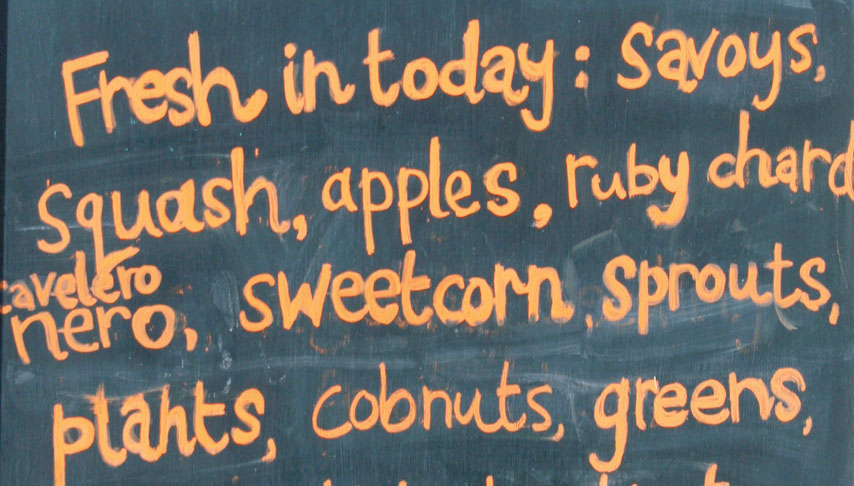 Fresh in today: Savoys,
Squash, apples, ruby chard
cavelero
nero, sweetcorn, sprouts,
plants, cobnuts, greens,